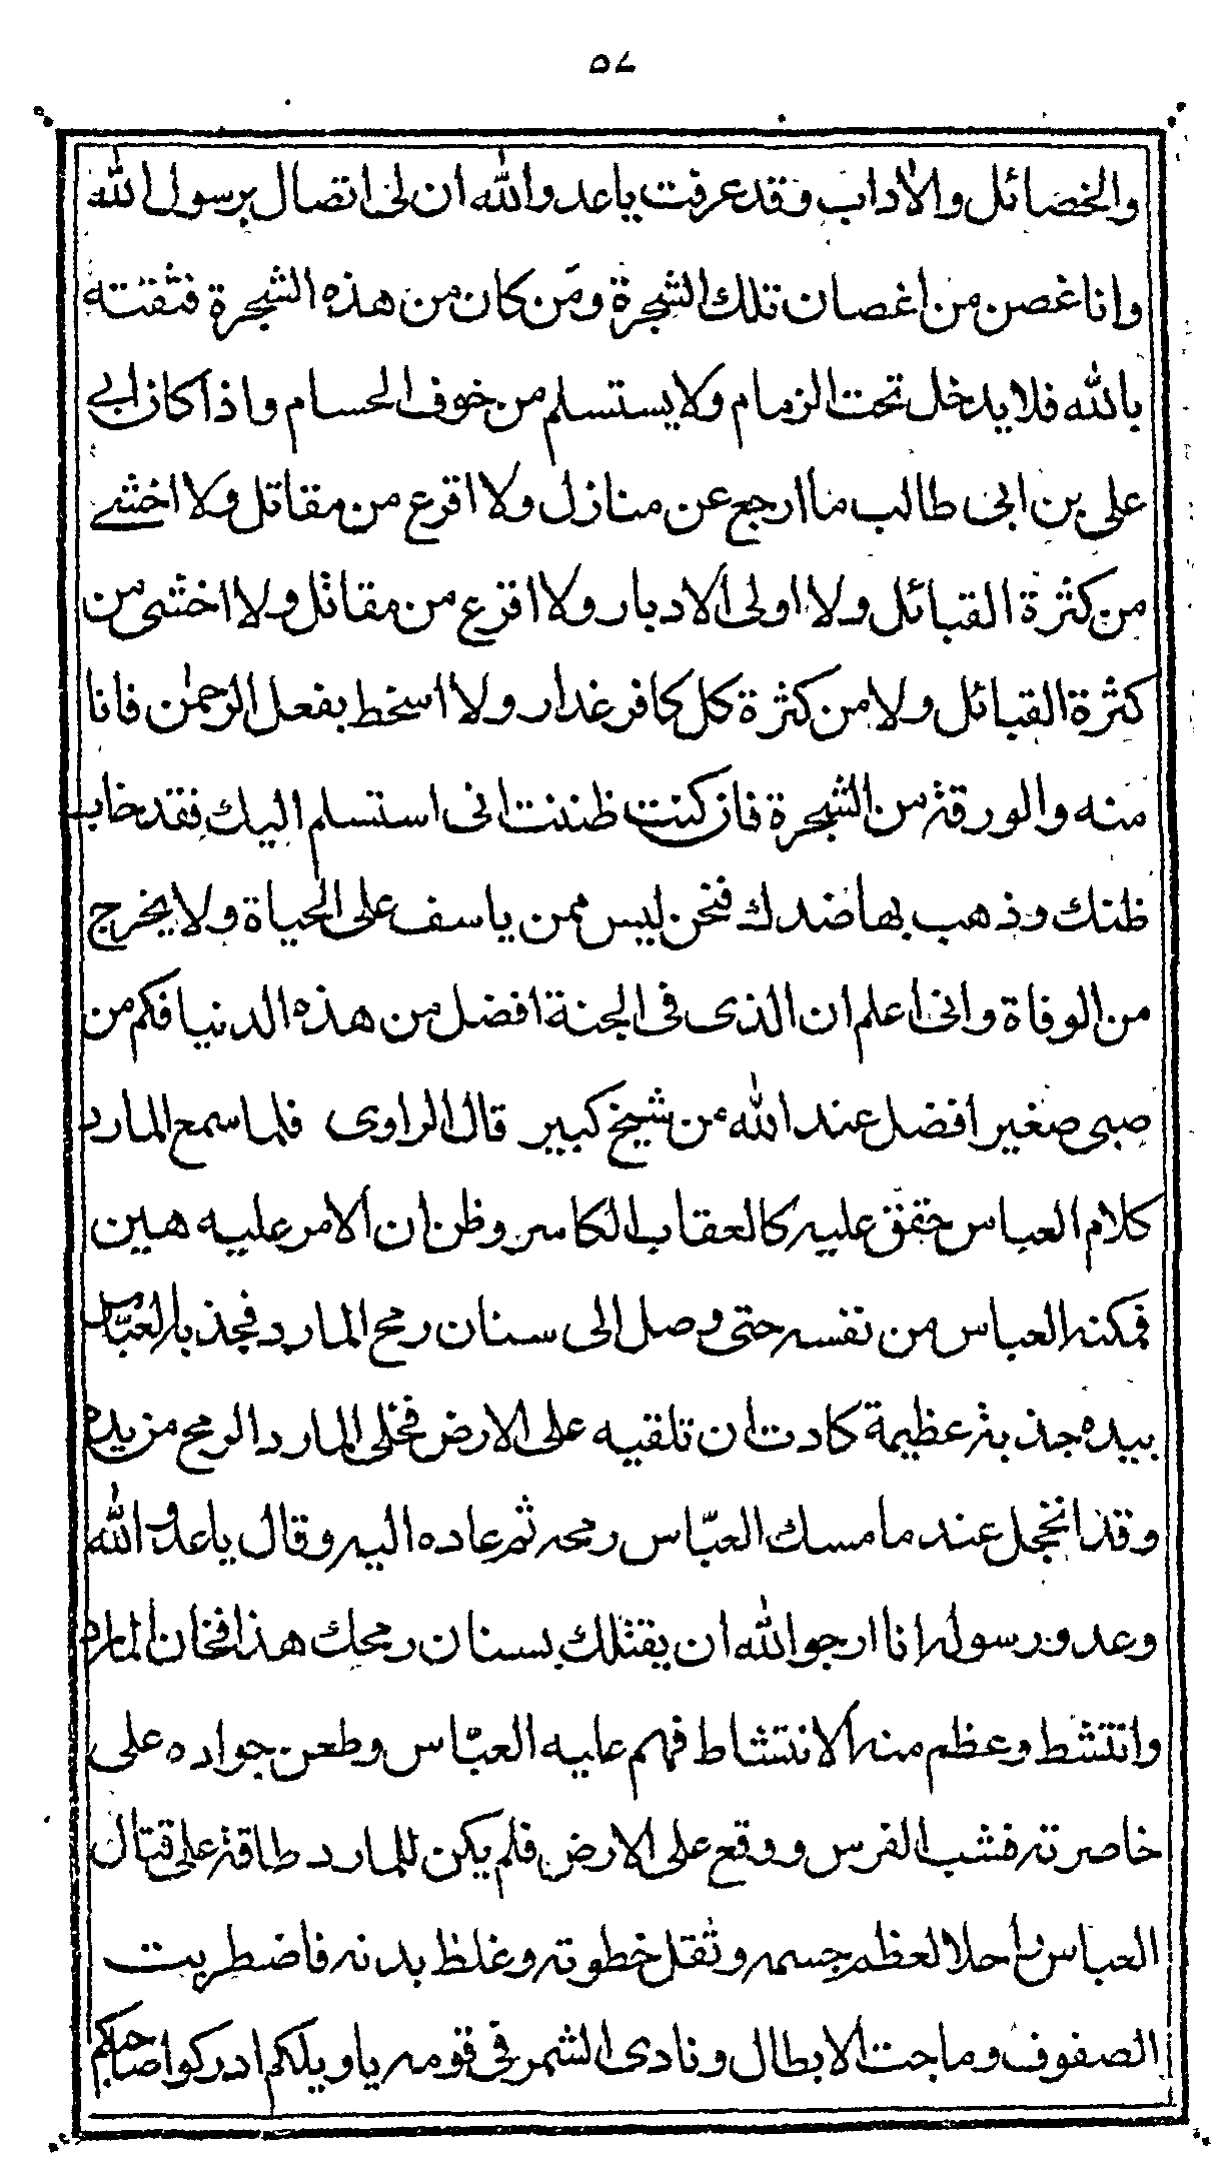 ٥٧
والخصائل والاداب وقد عرفت ياعدو الله ان لى اتصال برسول الله
وانا غصن من اغصان تلك الشجرة ومن كان من هذه الشجرة فثقته
بالله فلا يدخل تحت الزمام ولا يستسلم من خوف الحسام واذا كان ابى
على بن ابى طالب ما ارجع عن منازل ولا اقرع من مقاتل ولا اخشى
من كثرة القبائل ولا اولى الادبار ولا افزع من مقاتل ولا اخشى من
كثرة القبائل ولا من كثرة كل كافر غدار ولا اسخط بفعل الرحمٰن فانا
منه والورقة من الشجرة فان كنت ظننت انى استسلم اليك فقد خاب
ظنك وذهب بها ضدك فنحن ليس ممن ياسف على الحياة ولا يخرج
من الوفاة وانى اعلم ان الذى فى الجنة افضل من هذه الدنيا فكم من
صبى صغير افضل عند الله من شيخ كبير قال الراوى فلما سمع المارد
كلام العباس حقق عليه كالعقاب الكاسر وظن ان الامر عليه هين
فمكنه العباس من نفسه حتى وصل الى سنان رمح المارد فجذبه العبّاس
بيده جذبة عظيمة كادت ان تلقيه على الارض فخلى المارد الرمح من يده
وقد انخجل عند ما مسك العبّاس رمحه ثم عاده اليه وقال ياعدو الله
وعدو رسوله انا ارجو الله ان يقتلك بسنان رمحك هذا فخان المارد
وانتشط وعظم منه الانتشاط فهم عليه العبّاس وطعن جواده على
خاصرته فشب الفرس ووقع على الارض فلم يكن للمارد طاقة على قتال
العباس راحلا لعظم جسمه وثقل خطوته وغلظ بدنه فاضطربت
الصفوف وماجت الابطال ونادى الشمر فى قومه ياويلكم ادركوا صاحبكم